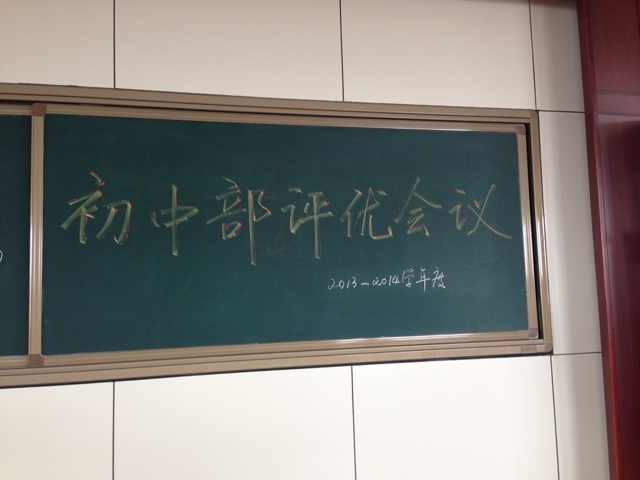 初中部评优会议
2013-2014学年度